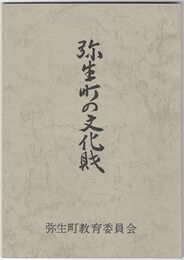 弥生町の文化財
弥生町教育委員会